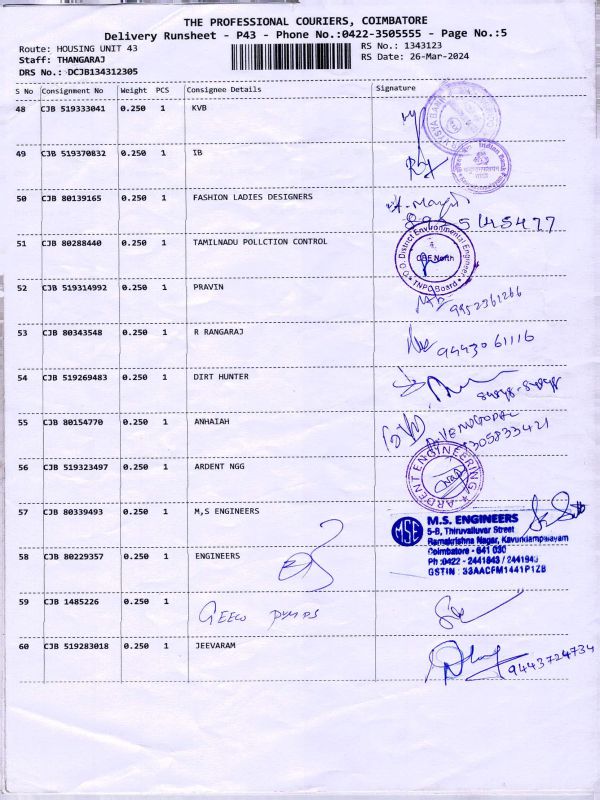 THE PROFESSIONAL COURIERS, COIMBATORE
Delivery Runsheet - P43 - Phone No.:0422-3505555 - Page No.:5
Route: HOUSING UNIT 43 RS No.: 1343123
Staff: THANGARAJ RS Date: 26-Mar-2024
DRS No.: DCJB134312305
S No Consignment No Weight PCS Consignee Details Signature
48 CJB 519333041 0.250 1 KVB
49 CJB 519370832 0.250 1 IB
Indian Bank
50 CJB 80139165 0.250 1 FASHION LADIES DESIGNERS
51 CJB 80288440 0.250 1 TAMILNADU POLLCTION CONTROL
O/O. District Environmental Engineer
CBE North
TNPC Board
52 CJB 519314992 0.250 1 PRAVIN
9952361266
53 CJB 80343548 0.250 1 R RANGARAJ
9443061116
54 CJB 519269483 0.250 1 DIRT HUNTER
55 CJB 80154770 0.250 1 ANHAIAH
VENUGOPAL
9305833421
56 CJB 519323497 0.250 1 ARDENT NGG
ARDENT ENGINEERING
57 CJB 80339493 0.250 1 M,S ENGINEERS
MSE M.S. ENGINEERS
5-B, Thiruvalluvar Street
Ramakrishna Nagar, Kavundampalayam
Coimbatore - 641 030
Ph :0422 - 2441843 / 2441943
GSTIN : 33AACFM1441P1ZB
58 CJB 80229357 0.250 1 ENGINEERS
59 CJB 1485226 0.250 1 GEECO PUMPS
60 CJB 519283018 0.250 1 JEEVARAM
9443724734